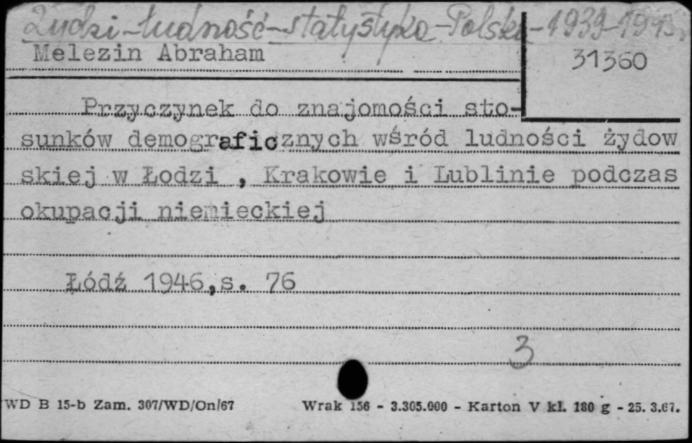 Żydzi-ludność-statystyka-Polska-1939-1945
Melezin Abraham
31360
Przyczynek do znajomości sto-
sunków demograficznych wśród ludności żydow
skiej w Łodzi , Krakowie i Lublinie podczas
okupacji niemieckiej
Łódź 1946,s. 76
3
WD B 15-b Zam. 307/WD/On/67 Wrak 156 - 3.305.000 - Karton V kl. 180 g - 25. 3.67.